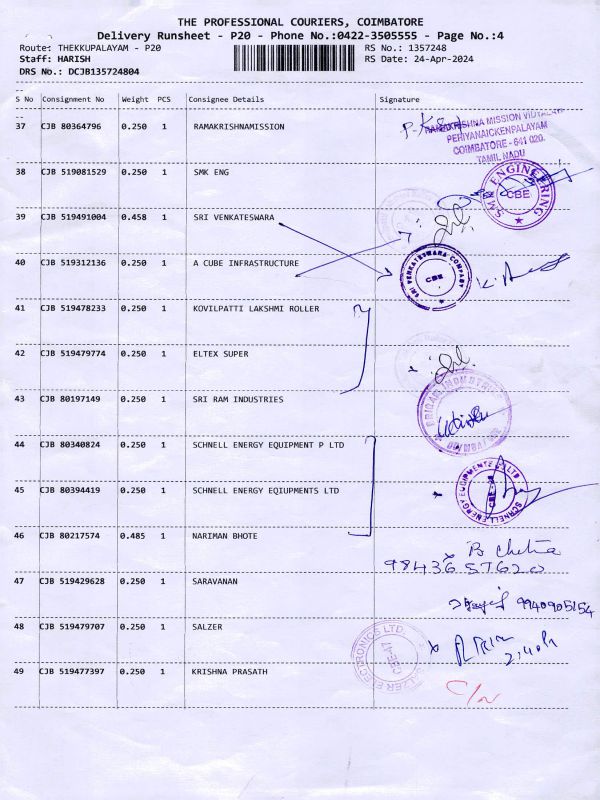 THE PROFESSIONAL COURIERS, COIMBATORE
Delivery Runsheet - P20 - Phone No.:0422-3505555 - Page No.:4
Route: THEKKUPALAYAM - P20 RS No.: 1357248
Staff: HARISH RS Date: 24-Apr-2024
DRS No.: DCJB135724804
S No Consignment No Weight PCS Consignee Details Signature
37 CJB 80364796 0.250 1 RAMAKRISHNAMISSION
RAMAKRISHNA MISSION VIDYALAYA
PERIYANAICKENPALAYAM
COIMBATORE - 641 020.
TAMIL NADU
38 CJB 519081529 0.250 1 SMK ENG
ENGINEERING
CBE
39 CJB 519491004 0.458 1 SRI VENKATESWARA
40 CJB 519312136 0.250 1 A CUBE INFRASTRUCTURE
SRI VENKATESWARA COMPANY
CBE
41 CJB 519478233 0.250 1 KOVILPATTI LAKSHMI ROLLER
42 CJB 519479774 0.250 1 ELTEX SUPER
43 CJB 80197149 0.250 1 SRI RAM INDUSTRIES
44 CJB 80340824 0.250 1 SCHNELL ENERGY EQUIPMENT P LTD
45 CJB 80394419 0.250 1 SCHNELL ENERGY EQIUPMENTS LTD
SCHNELL ENERGY EQUIPMENTS
LTD
46 CJB 80217574 0.485 1 NARIMAN BHOTE
98436 57620
47 CJB 519429628 0.250 1 SARAVANAN
9940905154
48 CJB 519479707 0.250 1 SALZER
SALZER ELECTRONICS LTD.
CBE-47
49 CJB 519477397 0.250 1 KRISHNA PRASATH